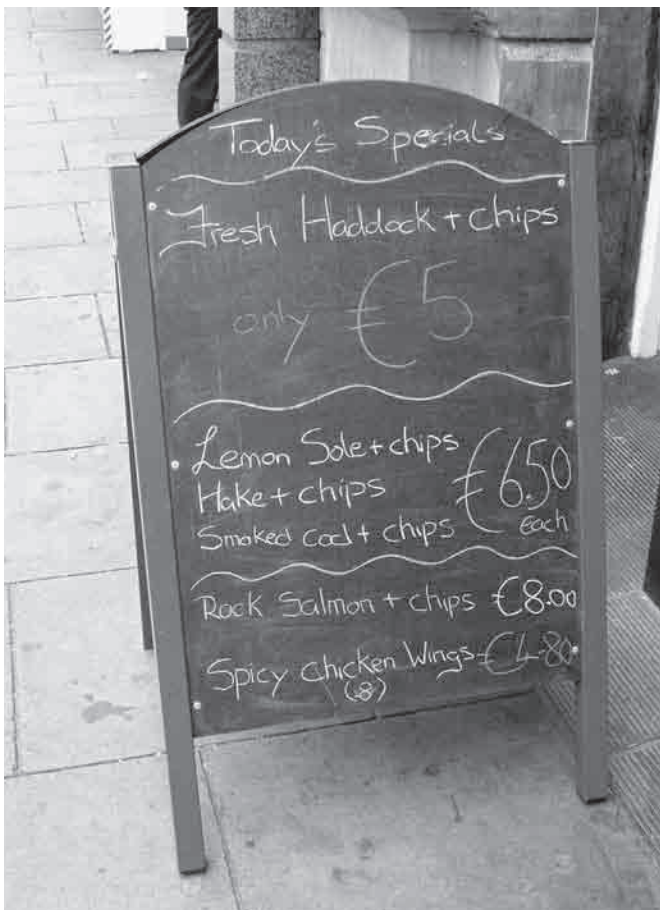 Today's Specials
Fresh Haddock + chips
only €5
Lemon Sole + chips
Hake + chips €6.50
Smoked cod + chips each
Rock Salmon + chips €8.00
Spicy chicken Wings €4.80
(8)